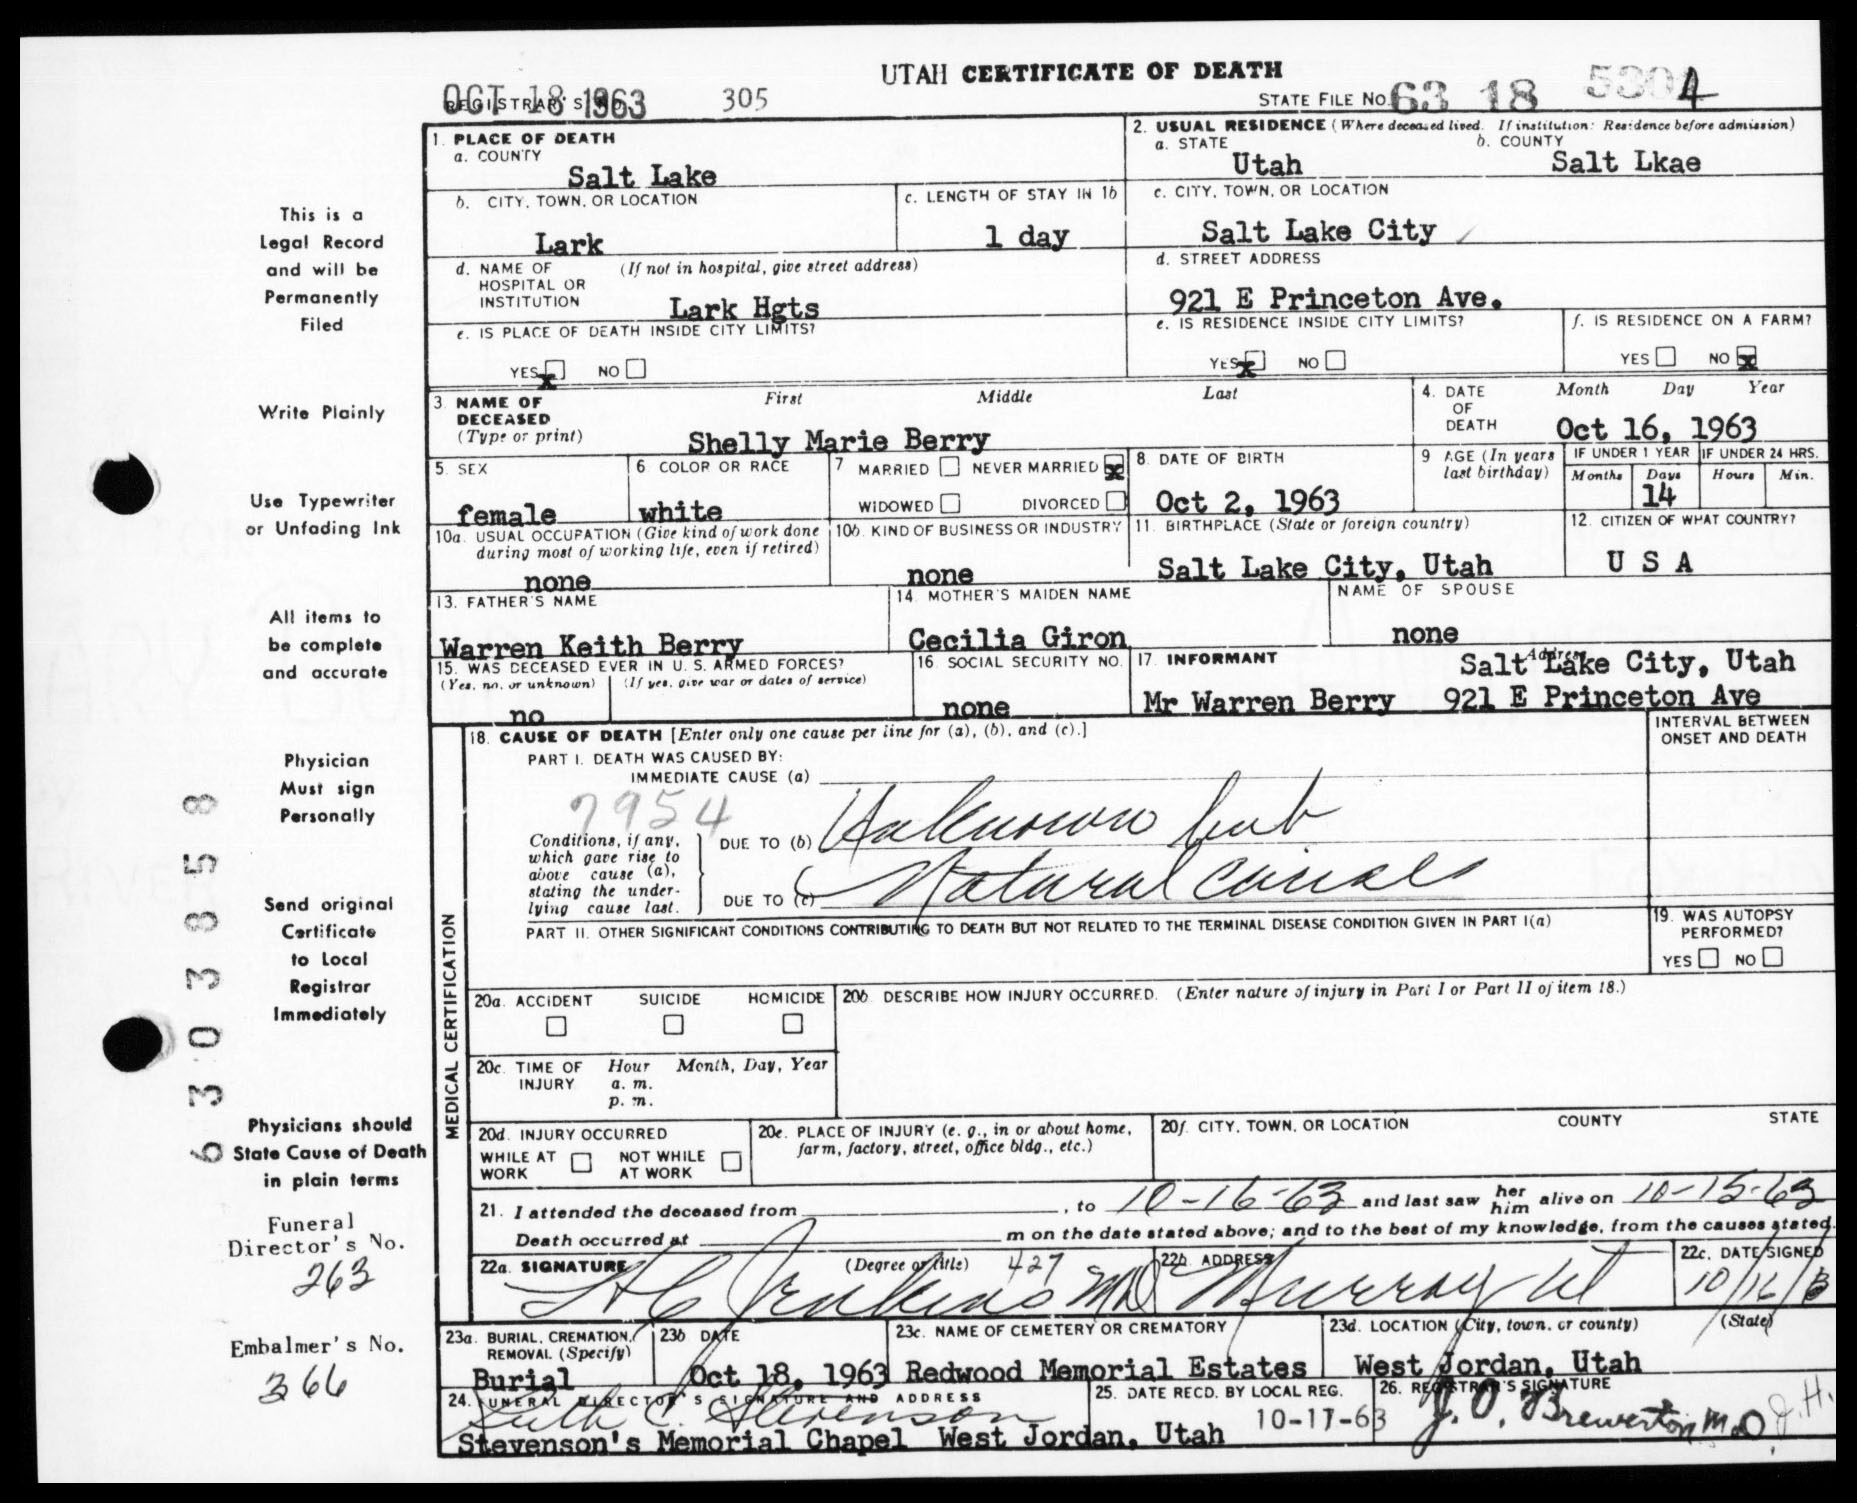 UTAH CERTIFICATE OF DEATH
OCT 18 1963
REGISTRAR'S NO. 305
STATE FILE NO. 63 18 5304
1. PLACE OF DEATH
a. COUNTY
Salt Lake
2. USUAL RESIDENCE (Where deceased lived. If institution: Residence before admission)
a. STATE
Utah
b. COUNTY
Salt Lkae
b. CITY, TOWN, OR LOCATION
Lark
c. LENGTH OF STAY IN 1b
1 day
c. CITY, TOWN, OR LOCATION
Salt Lake City
d. NAME OF HOSPITAL OR INSTITUTION
(If not in hospital, give street address)
Lark Hgts
d. STREET ADDRESS
921 E Princeton Ave.
e. IS PLACE OF DEATH INSIDE CITY LIMITS?
YES x NO
e. IS RESIDENCE INSIDE CITY LIMITS?
YES x NO
f. IS RESIDENCE ON A FARM?
YES NO x
3. NAME OF DECEASED (Type or print)
First Middle Last
Shelly Marie Berry
4. DATE OF DEATH
Month Day Year
Oct 16, 1963
5. SEX
female
6. COLOR OR RACE
white
7. MARRIED NEVER MARRIED x
WIDOWED DIVORCED
8. DATE OF BIRTH
Oct 2, 1963
9. AGE (In years last birthday)
IF UNDER 1 YEAR
Months Days
14
IF UNDER 24 HRS.
Hours Min.
10a. USUAL OCCUPATION (Give kind of work done during most of working life, even if retired)
none
10b. KIND OF BUSINESS OR INDUSTRY
none
11. BIRTHPLACE (State or foreign country)
Salt Lake City, Utah
12. CITIZEN OF WHAT COUNTRY?
U S A
13. FATHER'S NAME
Warren Keith Berry
14. MOTHER'S MAIDEN NAME
Cecilia Giron
NAME OF SPOUSE
none
15. WAS DECEASED EVER IN U. S. ARMED FORCES?
(Yes, no, or unknown) (If yes, give war or dates of service)
no
16. SOCIAL SECURITY NO.
none
17. INFORMANT
Address
Salt Lake City, Utah
Mr Warren Berry 921 E Princeton Ave
MEDICAL CERTIFICATION
18. CAUSE OF DEATH [Enter only one cause per line for (a), (b), and (c).]
INTERVAL BETWEEN ONSET AND DEATH
PART I. DEATH WAS CAUSED BY:
IMMEDIATE CAUSE (a)
7954
Conditions, if any, which gave rise to above cause (a), stating the underlying cause last.
DUE TO (b) Unknown but
DUE TO (c) Natural causes
PART II. OTHER SIGNIFICANT CONDITIONS CONTRIBUTING TO DEATH BUT NOT RELATED TO THE TERMINAL DISEASE CONDITION GIVEN IN PART I(a)
19. WAS AUTOPSY PERFORMED?
YES NO
20a. ACCIDENT SUICIDE HOMICIDE
20b. DESCRIBE HOW INJURY OCCURRED. (Enter nature of injury in Part I or Part II of item 18.)
20c. TIME OF INJURY
Hour Month, Day, Year
a. m.
p. m.
20d. INJURY OCCURRED
WHILE AT WORK NOT WHILE AT WORK
20e. PLACE OF INJURY (e. g., in or about home, farm, factory, street, office bldg., etc.)
20f. CITY, TOWN, OR LOCATION COUNTY STATE
21. I attended the deceased from , to 10-16-63 and last saw her him alive on 10-15-63
Death occurred at m on the date stated above; and to the best of my knowledge, from the causes stated.
22a. SIGNATURE (Degree or title) 427
Jenkins MD
22b. ADDRESS
Murray Ut
22c. DATE SIGNED
10/16/63
23a. BURIAL, CREMATION, REMOVAL (Specify)
Burial
23b. DATE
Oct 18, 1963
23c. NAME OF CEMETERY OR CREMATORY
Redwood Memorial Estates
23d. LOCATION (City, town, or county) (State)
West Jordan, Utah
24. FUNERAL DIRECTOR'S SIGNATURE AND ADDRESS
Stevenson
Stevenson's Memorial Chapel West Jordan, Utah
25. DATE RECD. BY LOCAL REG.
10-17-63
26. REGISTRAR'S SIGNATURE
J. O. Brewerton M.D
J.H.
This is a
Legal Record
and will be
Permanently
Filed
Write Plainly
Use Typewriter
or Unfading Ink
All items to
be complete
and accurate
Physician
Must sign
Personally
Send original
Certificate
to Local
Registrar
Immediately
Physicians should
State Cause of Death
in plain terms
Funeral
Director's No.
263
Embalmer's No.
366
63038558